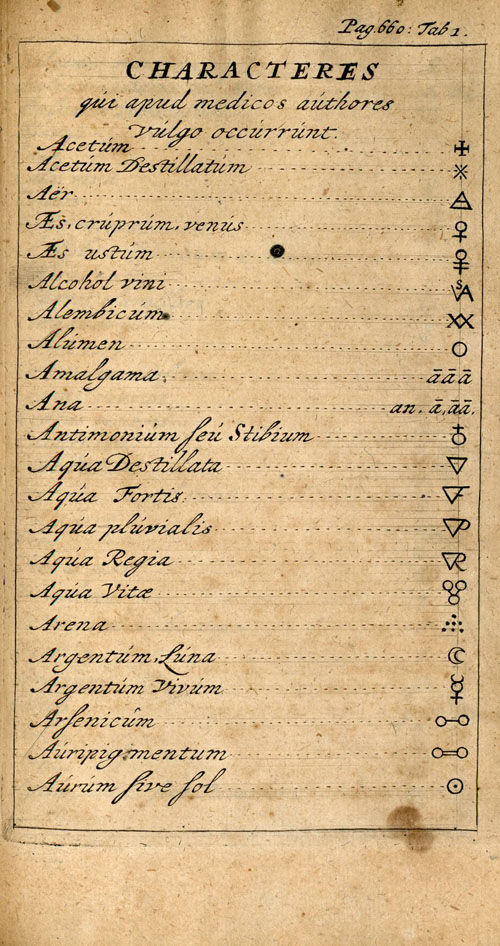 Pag. 660: Tab 1.
CHARACTERES
qúi apud medicos aúthores
vúlgo occúrrúnt.
Acetúm
Acetúm Destillatúm
Aër
Æs, crúprúm, venús
Æs ustúm
Alcohol vini
Alembicúm
Alúmen
Amalgama āāā
Ana an. ā, āā.
Antimoniúm seú Stibium
Aqúa Destillata
Aqúa Fortis
Aqúa plúvialis
Aqúa Regia
Aqúa Vitæ
Arena
Argentúm, Lúna
Argentúm Vivúm
Arsenicúm
Aúripigmentum
Aúrúm sive sol